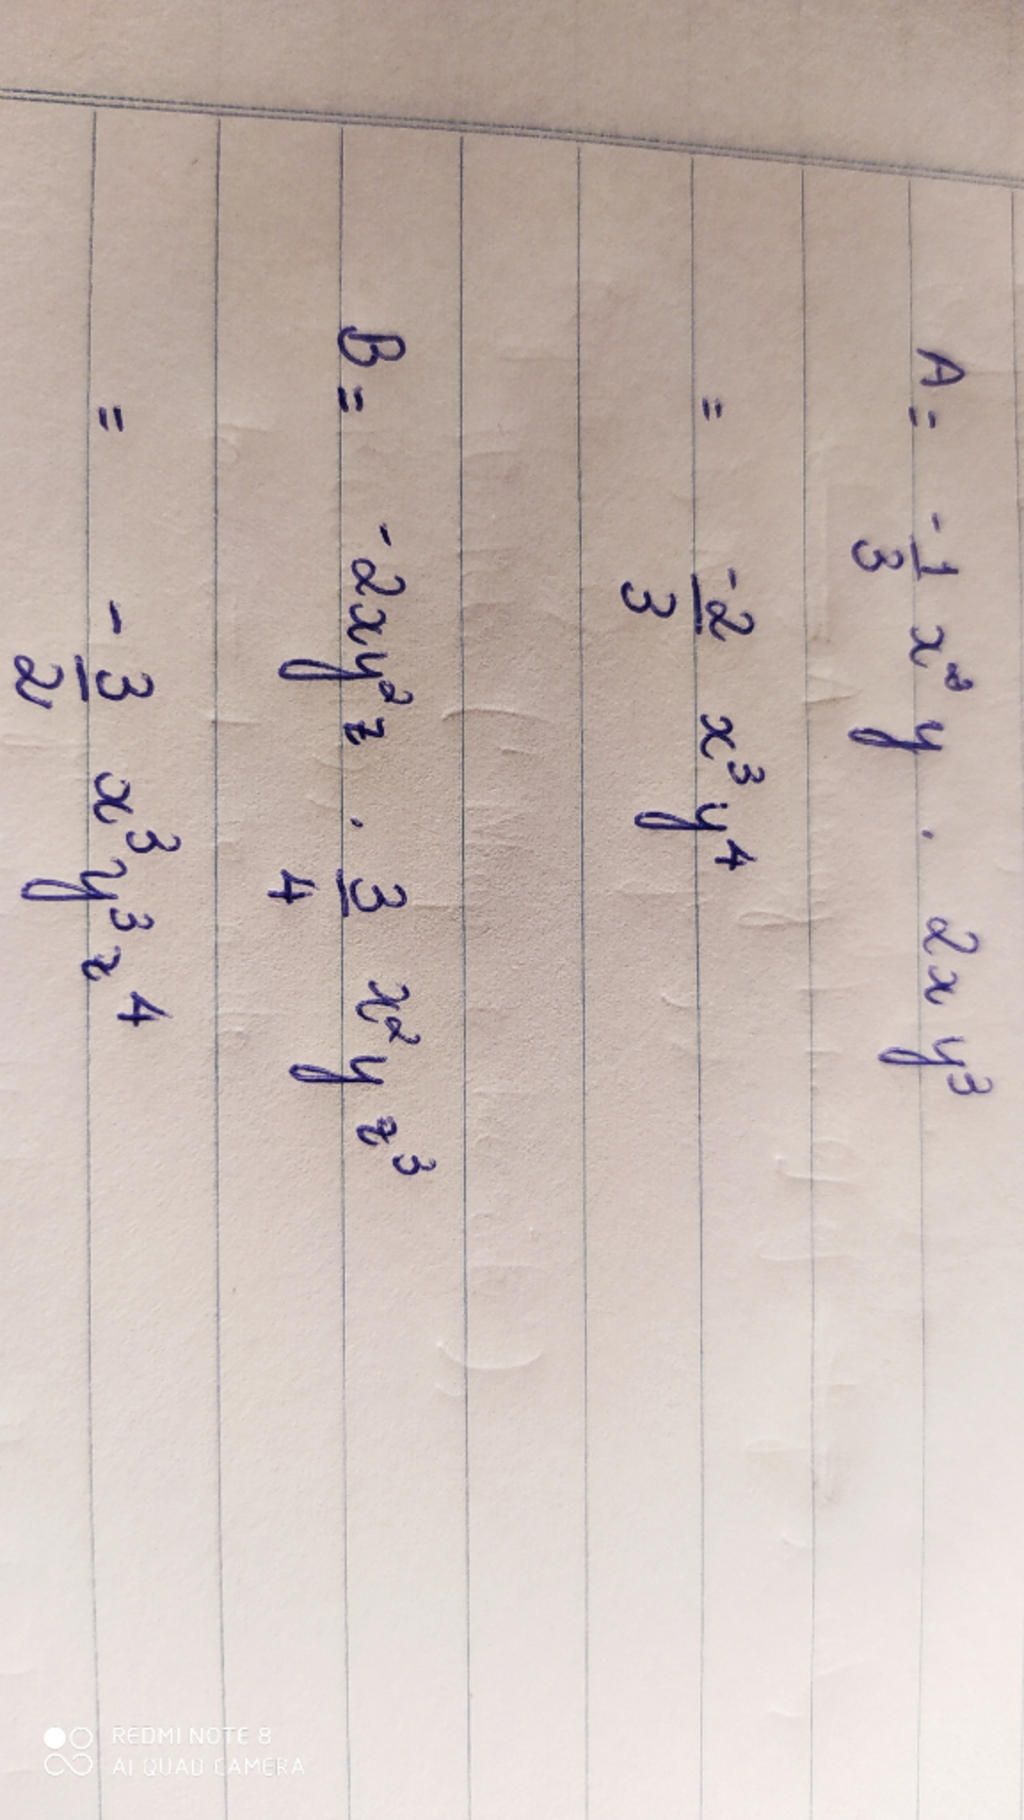 A = -1/3 x² y . 2x y³
= -2/3 x³ y⁴
B = -2xy² z . 3/4 x² y z³
= -3/2 x³ y³ z⁴
REDMI NOTE 8
AI QUAD CAMERA